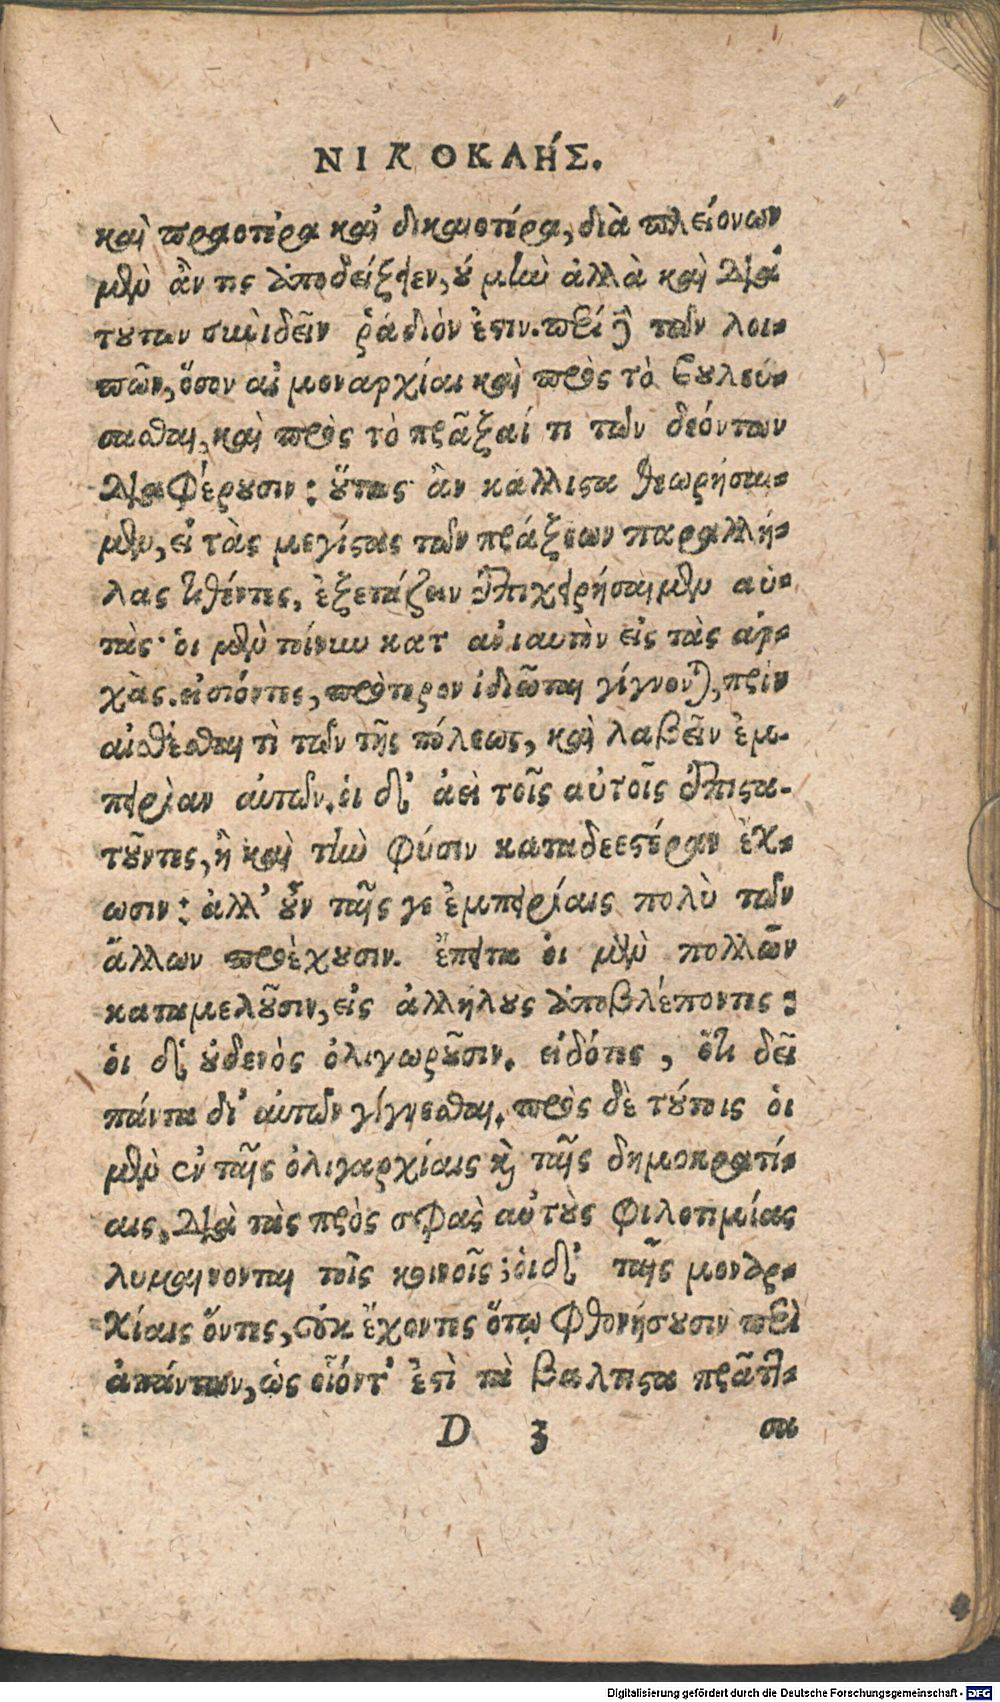 ΝΙΚΟΚΛΗ΄Σ.
καὶ πραοτέρα καὶ δικαιοτέρα, διὰ πλειόνων
μὲν ἄν τις ἀποδείξειεν, οὐ μὴν ἀλλὰ καὶ διὰ
τούτων συνιδεῖν ῥάδιόν ἐστιν. περὶ δὲ τῶν λοι-
πῶν, ὅσον αἱ μοναρχίαι καὶ πρὸς τὸ βουλεύ-
σασθαι, καὶ πρὸς τὸ πρᾶξαί τι τῶν δεόντων
διαφέρουσιν: οὕτως ἂν κάλλιστα θεωρήσαι-
μεν, εἰ τὰς μεγίστας τῶν πράξεων παραλλή-
λας τιθέντες, ἐξετάζειν ἐπιχειρήσαιμεν αὐ-
τὰς· οἱ μὲν τοίνυν κατ ἐνιαυτὸν εἰς τὰς ἀρ-
χὰς. εἰσιόντες, πρότερον ἰδιῶται γίγνονται, πρὶν
αἰσθέσθαι τὶ τῶν τῆς πόλεως, καὶ λαβεῖν ἐμ-
πειρίαν αὐτῶν. οἱ δ' ἀεὶ τοῖς αὐτοῖς ἐπιστα-
τοῦντες, ἢ καὶ τὴν φύσιν καταδεεστέραν ἔχ-
ωσιν: ἀλλ' οὖν ταῖς γε ἐμπειρίαις πολὺ τῶν
ἄλλων προέχουσιν. ἔπειτα οἱ μὲν πολλῶν
καταμελοῦσιν, εἰς ἀλλήλους ἀποβλέποντες:
οἱ δ' οὐδενὸς ὀλιγωροῦσιν. εἰδότες, ὅτι δεῖ
πάντα δι' αὐτῶν γίγνεσθαι. πρὸς δὲ τούτοις οἱ
μὲν ἐν ταῖς ὀλιγαρχίαις καὶ ταῖς δημοκρατί-
αις, διὰ τὰς πρὸς σφᾶς αὐτοὺς φιλοτιμίας
λυμαίνονται τοῖς κοινοῖς; οἱ δ' ταῖς μοναρ-
χίαις ὄντες, οὐκ ἔχοντες ὅτῳ φθονήσουσιν περὶ
ἁπάντων, ὡς οἷόντ' ἐστὶ τὰ βαλτιστα πράττ-
D 3 σα
Digitalisierung gefördert durch die Deutsche Forschungsgemeinschaft - DFG